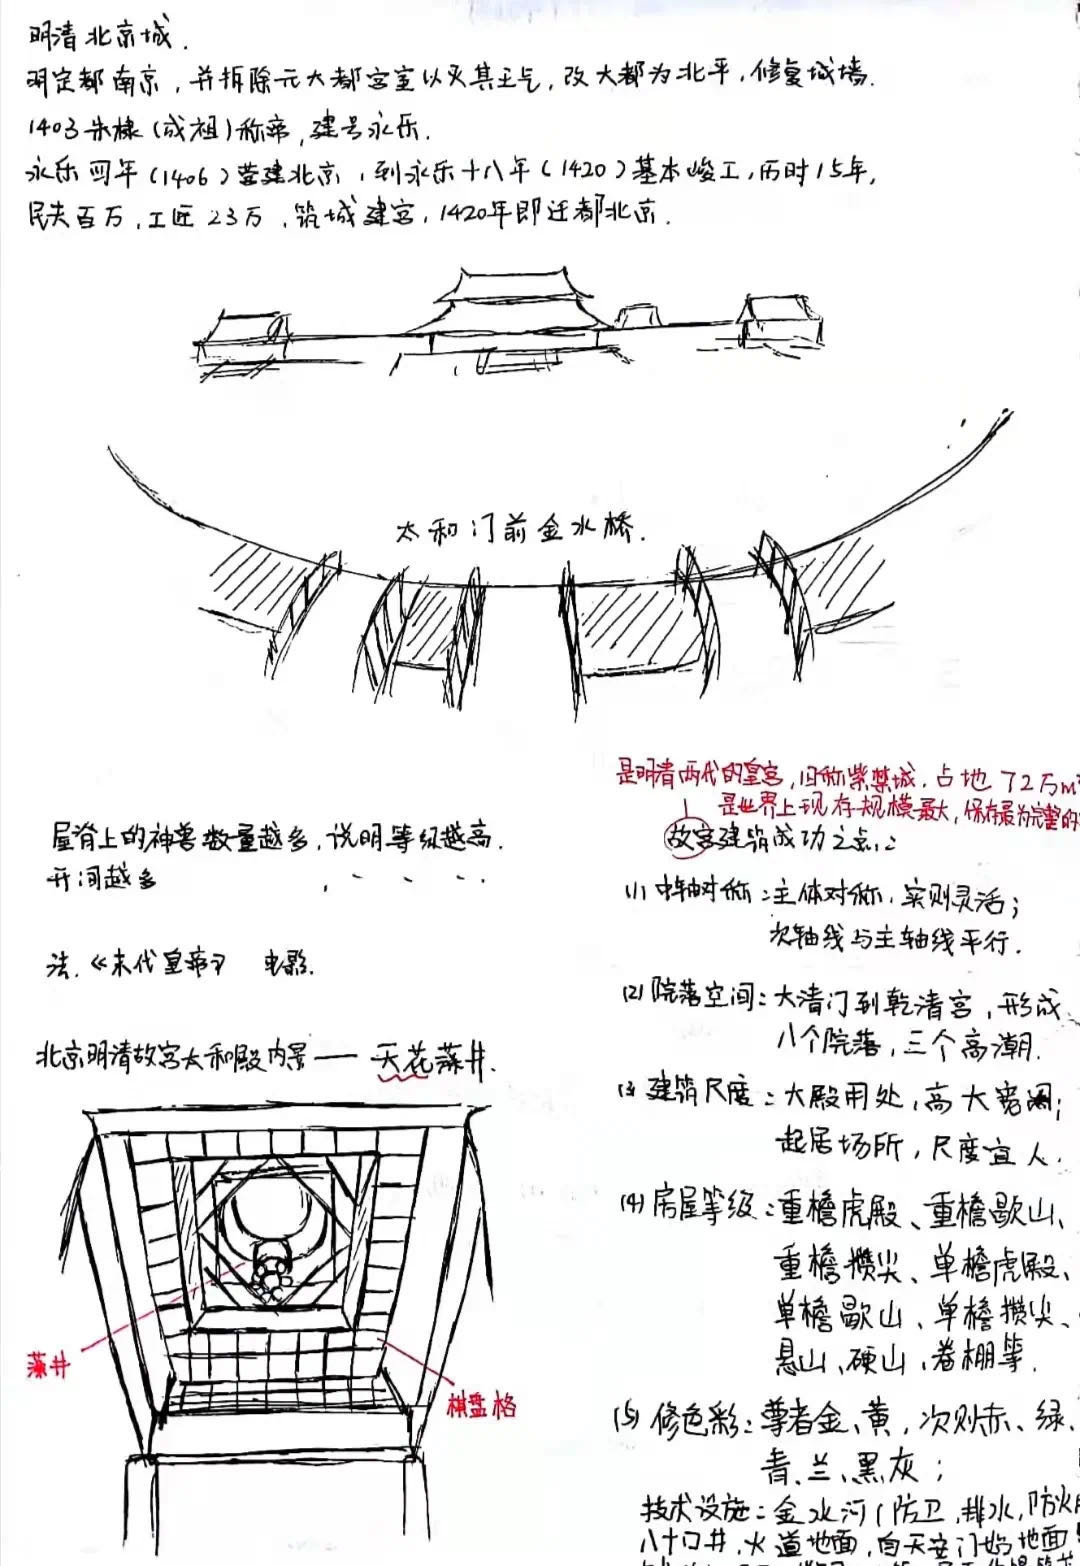 明清北京城.
明定都南京，并拆除元大都宫室以灭其王气，改大都为北平，修复城墙.
1403朱棣(成祖)称帝,建号永乐.
永乐四年(1406)营建北京，到永乐十八年(1420)基本峻工,历时15年,
民夫百万,工匠23万,筑城建宫，1420年即迁都北京.
太和门前金水桥.
屋脊上的神兽数量越多,说明等级越高.
开间越多
法.《末代皇帝》 电影.
北京明清故宫太和殿内景——天花藻井.
藻井
棋盘格
是明清两代的皇宫,旧称紫禁城,占地72万m²
是世界上现存规模最大,保存最为完整的
故宫建筑成功之点:
(1)中轴对称:主体对称,实则灵活;
次轴线与主轴线平行.
(2)院落空间:大清门到乾清宫,形成
八个院落,三个高潮.
(3)建筑尺度:大殿用处,高大宽阔;
起居场所,尺度宜人.
(4)房屋等级:重檐虎殿、重檐歇山、
重檐攒尖、单檐虎殿、
单檐歇山、单檐攒尖、
悬山、硬山、卷棚等.
(5)修色彩:尊者金、黄,次则赤、绿、
青、兰、黑灰;
技术设施:金水河(防卫,排水,防火
八十口井,火道地面,自天安门始地面